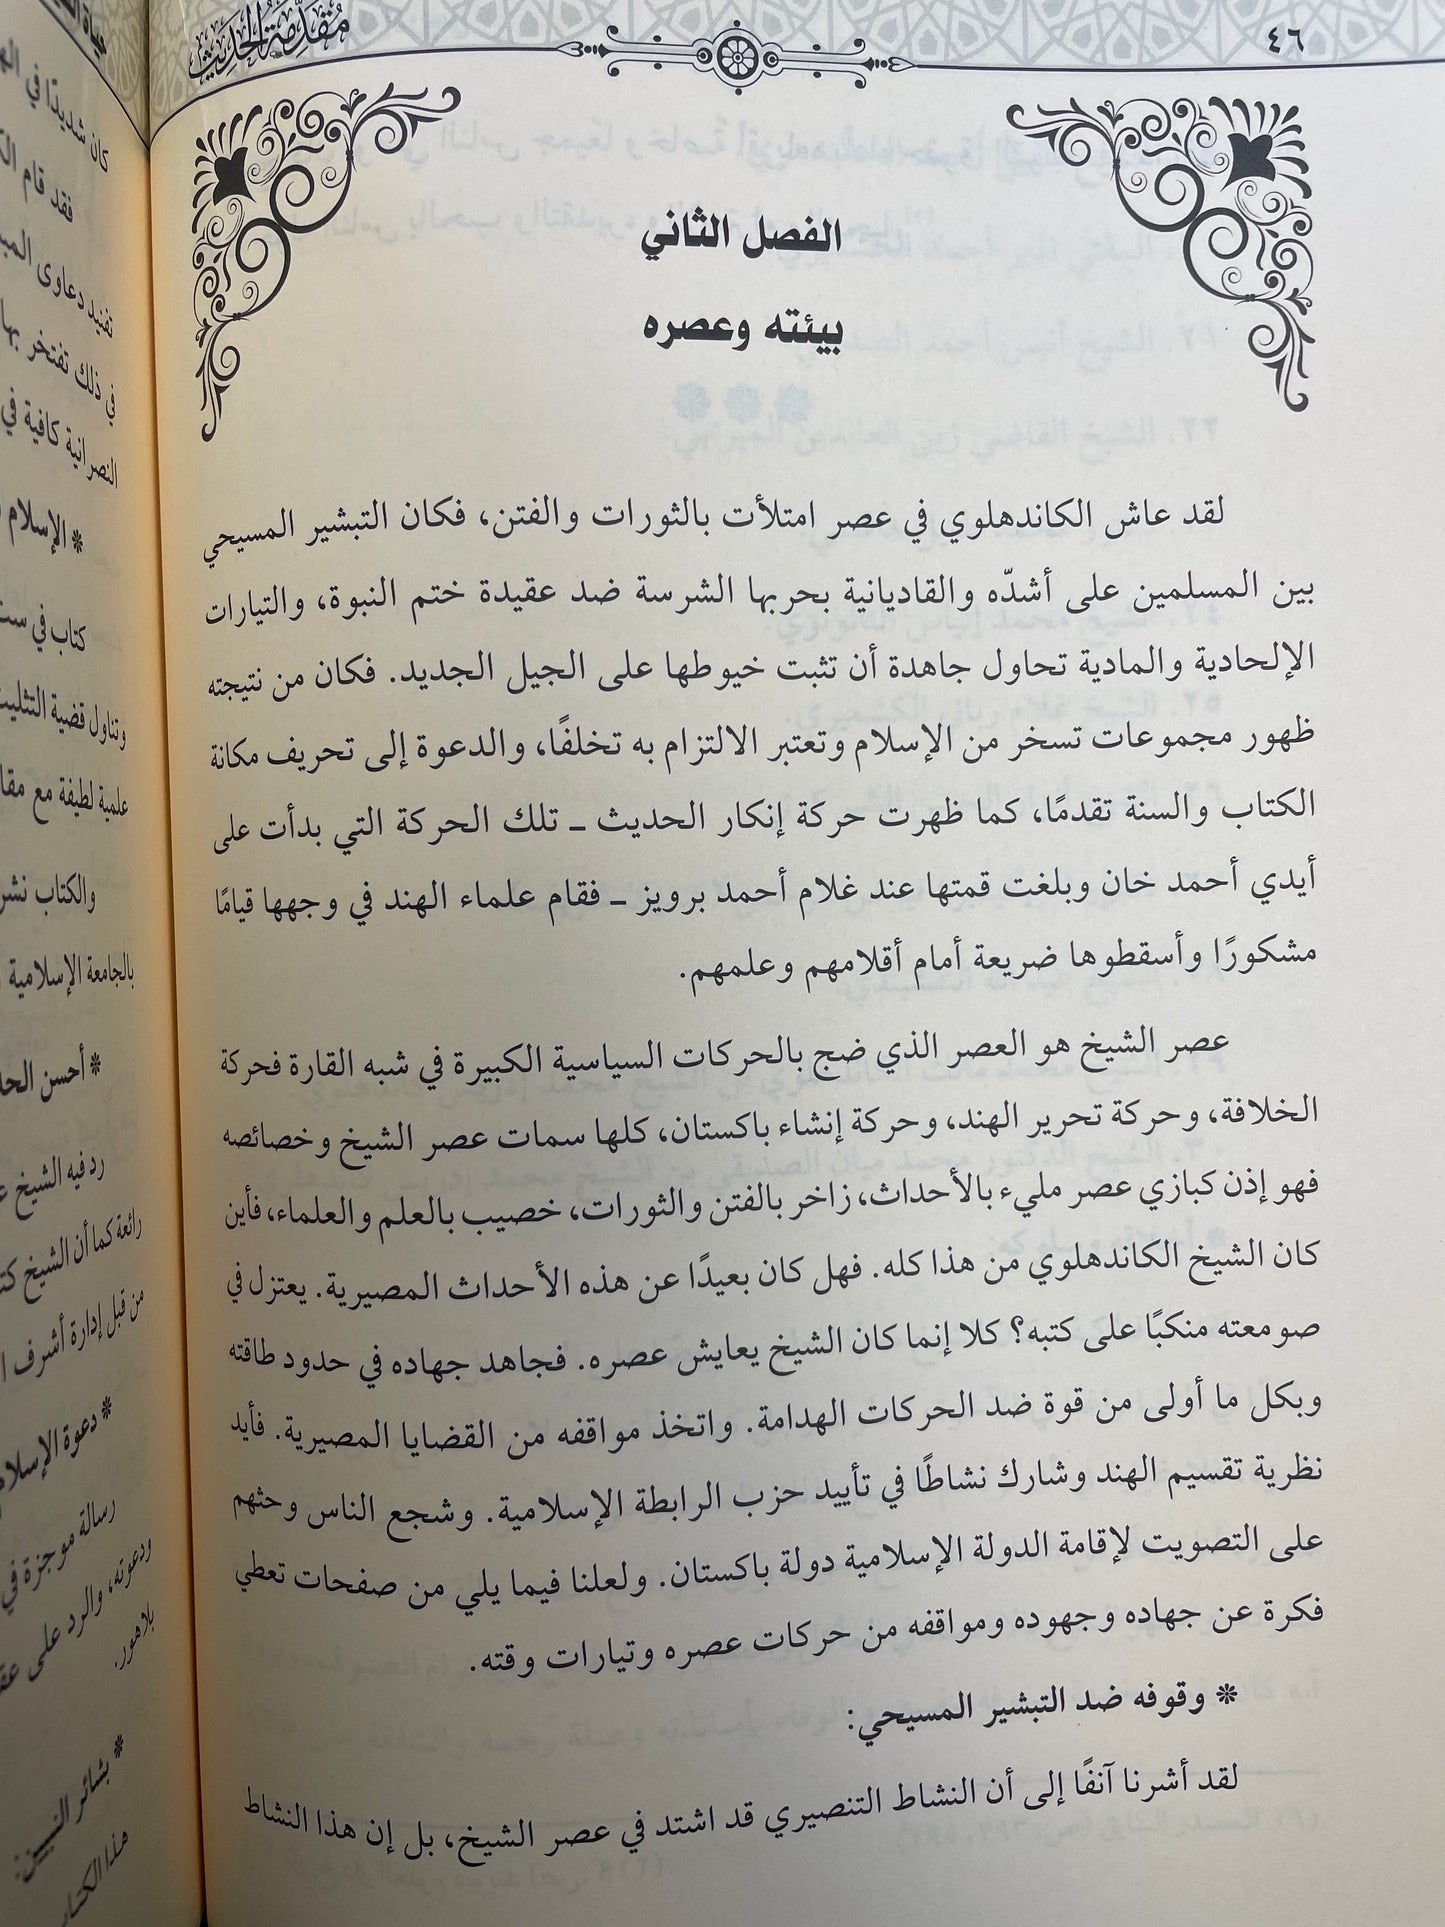 ٤٦
مقدمة الحديث
الفصل الثاني
بيئته وعصره
لقد عاش الكاندهلوي في عصر امتلأت بالثورات والفتن، فكان التبشير المسيحي
بين المسلمين على أشدّه والقاديانية بحربها الشرسة ضد عقيدة ختم النبوة، والتيارات
الإلحادية والمادية تحاول جاهدة أن تثبت خيوطها على الجيل الجديد. فكان من نتيجته
ظهور مجموعات تسخر من الإسلام وتعتبر الالتزام به تخلفًا، والدعوة إلى تحريف مكانة
الكتاب والسنة تقدمًا، كما ظهرت حركة إنكار الحديث ـ تلك الحركة التي بدأت على
أيدي أحمد خان وبلغت قمتها عند غلام أحمد برويز ـ فقام علماء الهند في وجهها قيامًا
مشكورًا وأسقطوها ضريعة أمام أقلامهم وعلمهم.
عصر الشيخ هو العصر الذي ضج بالحركات السياسية الكبيرة في شبه القارة فحركة
الخلافة، وحركة تحرير الهند، وحركة إنشاء باكستان، كلها سمات عصر الشيخ وخصائصه
فهو إذن كبازي عصر مليء بالأحداث، زاخر بالفتن والثورات، خصيب بالعلم والعلماء، فأين
كان الشيخ الكاندهلوي من هذا كله. فهل كان بعيدًا عن هذه الأحداث المصيرية. يعتزل في
صومعته منكبًا على كتبه؟ كلا إنما كان الشيخ يعايش عصره. فجاهد جهاده في حدود طاقته
وبكل ما أولى من قوة ضد الحركات الهدامة. واتخذ مواقفه من القضايا المصيرية. فأيد
نظرية تقسيم الهند وشارك نشاطًا في تأييد حزب الرابطة الإسلامية. وشجع الناس وحثهم
على التصويت لإقامة الدولة الإسلامية دولة باكستان. ولعلنا فيما يلي من صفحات تعطي
فكرة عن جهاده وجهوده ومواقفه من حركات عصره وتيارات وقته.
* وقوفه ضد التبشير المسيحي:
لقد أشرنا آنفًا إلى أن النشاط التنصيري قد اشتد في عصر الشيخ، بل إن هذا النشاط
كان شديدًا في
فقد قام
تفنيد دعاوى
في ذلك تفتخر بها
النصرانية كافية في
* الإسلام
كتاب في
وتناول قضية
علمية لطيفة مع
والكتاب نشر
بالجامعة الإسلامية
* أحسن
رد فيه الشيخ
رائعة كما أن الشيخ
من قبل إدارة أشرف
* دعوة الإسلام
رسالة موجزة في
ودعوته، والرد على
بلاهور.
* بشائر النبيين:
هذا الكتاب